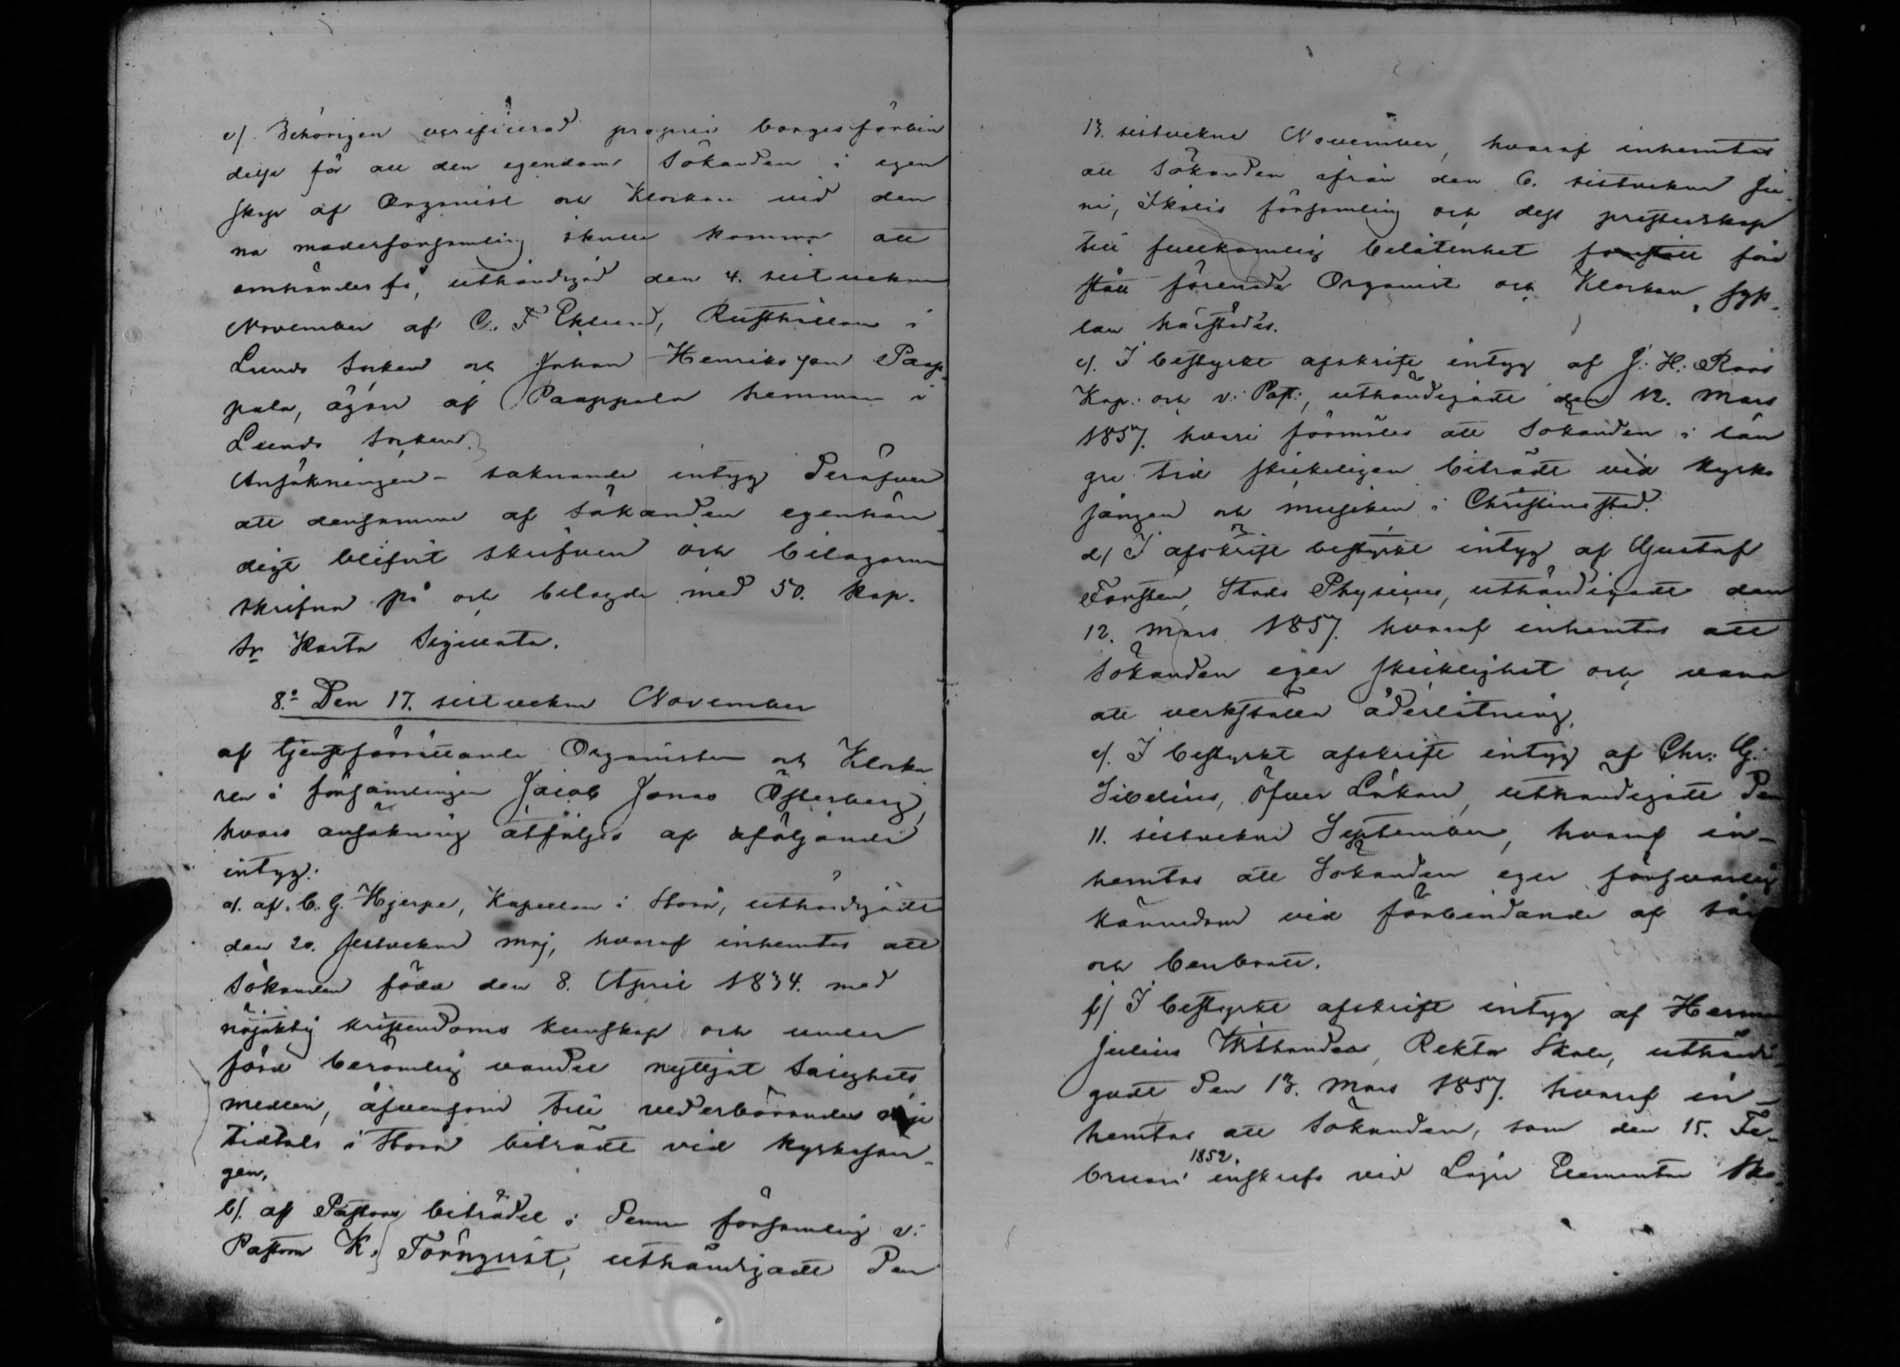 e/. Behörigen verificerad proprie borgesförbin
delse för all den egendom Sökanden i egen
skap af Organist och Klockare vid den
na moderförsamling skulle komma att
omhänderfå, uthändigad den 4. sistvekne
November af C. F Eklund, Rusthållare i
Lundo Socken och Johan Henriksson Paap
pala, ägare af Paappala hemman i
Lundo Socken.
Ansökningen - saknande intyg deröfver
att densamma af Sökanden egenhän
digt blifvit skrifven och bilagorna
skrifna på och belagde med 50. kop.
Sr Karta Sigillata.
8:o Den 17. sistvekne November
af tjenstförrättande Organisten och Klocka
ren i församlingen Jacob Jonas Österberg,
hvars ansökning åtföljes af följande
intyg:
a/. af C. G. Hjerpe, Kapellan i Storå, uthändigadt
den 20. sistvekne maj, hvaraf inhemtas att
Sökanden född den 8. April 1834. med
nöjaktig kristendoms kunskap och under
förd berömlig vandel nyttjat Salighets
medlen, äfvensom till vederbörandes nöje
tidtals i Storå biträdt vid kyrkosån-
gen,
b/. af Pastors biträdet i denna församling v:
Pastorn K. Törnqvist, uthändigadt den
13. sistvekne November, hvaraf inhemtas
att Sökanden ifrån den 6. sistvekne Ju
ni, Ikalis församling och dess presterskap
till fullkomlig belåtenhet före
stått förenade Organist och Klockare syss-
lan härstädes.
c/. I bestyrkt afskrift intyg af J: H: Roos
Kap: och v: Past:, uthändigadt den 12. Mars
1857. hvari förmäles att Sökanden i län
gre tid skickeligen biträdt vid kyrko
sången och musiken i Christinestad.
d/ I afskrift bestyrkt intyg af Gustaf
Forsten, Stads Physicus, uthändigadt den
12. Mars 1857. hvaraf inhemtas att
Sökanden eger skicklighet och vana
att verkställa åderlåtning.
e/. I bestyrkt afskrift intyg af Chr: G:
Sibelius, Öfver Läkare, uthändigadt den
11. sistvekne September, hvaraf in-
hemtas att Sökanden eger försvarlig
kännedom vid förbindande af sår
och benbrott.
f/ I bestyrkt afskrift intyg af Herman
Julius Rektor Skole, uthändi
gadt den 13. Mars 1857. hvaraf in-
hemtas att Sökanden, som den 15. Fe-
bruari 1852. inskrefs vid Lägre Elementar Sko-